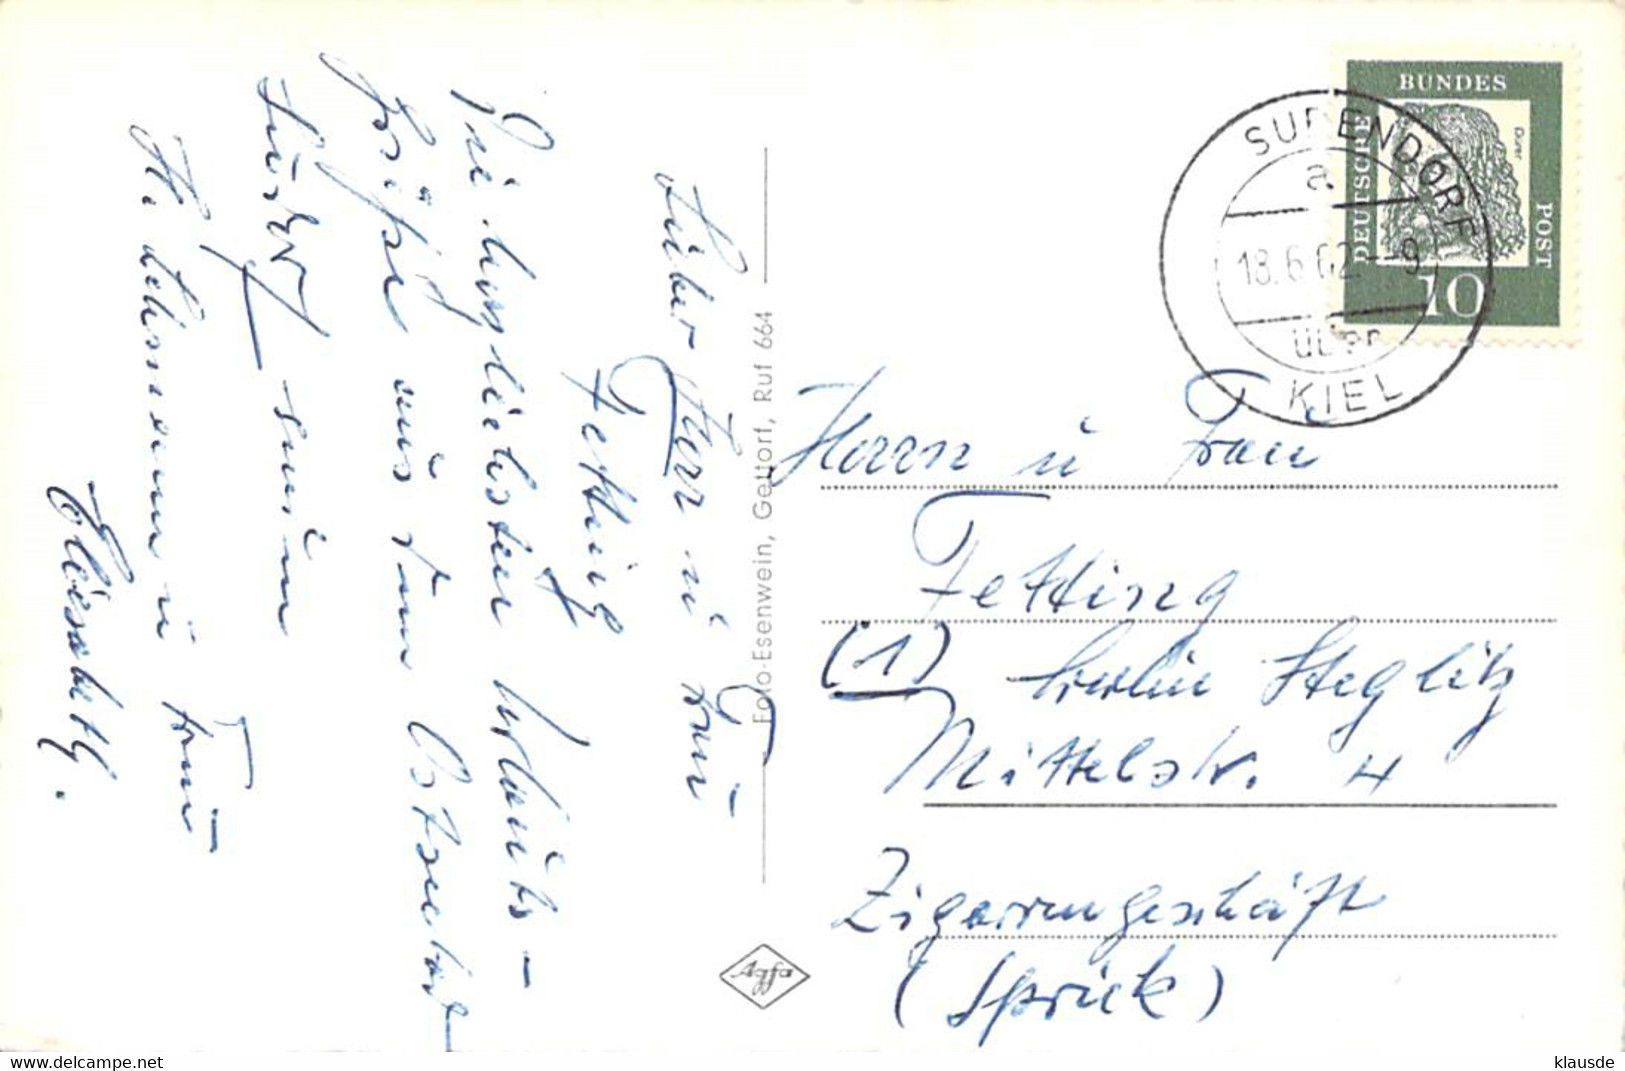 Lieber Herr u Frau
Fetting
Die herzlichsten Urlaubs-
Grüße aus dem Ostseebad
senden
H. u Frau
Elisabeth.
Foto-Esenwein, Gettorf, Ruf 664
Agfa
DEUTSCHE BUNDES POST
Dürer
10
SURENDORF
a
18.6.62 -9
über
KIEL
Herrn u Frau
Fetting
(1) Berlin Steglitz
Mittelstr. 4
Zigarrengeschäft
(Sprick)
www.delcampe.net
klausde